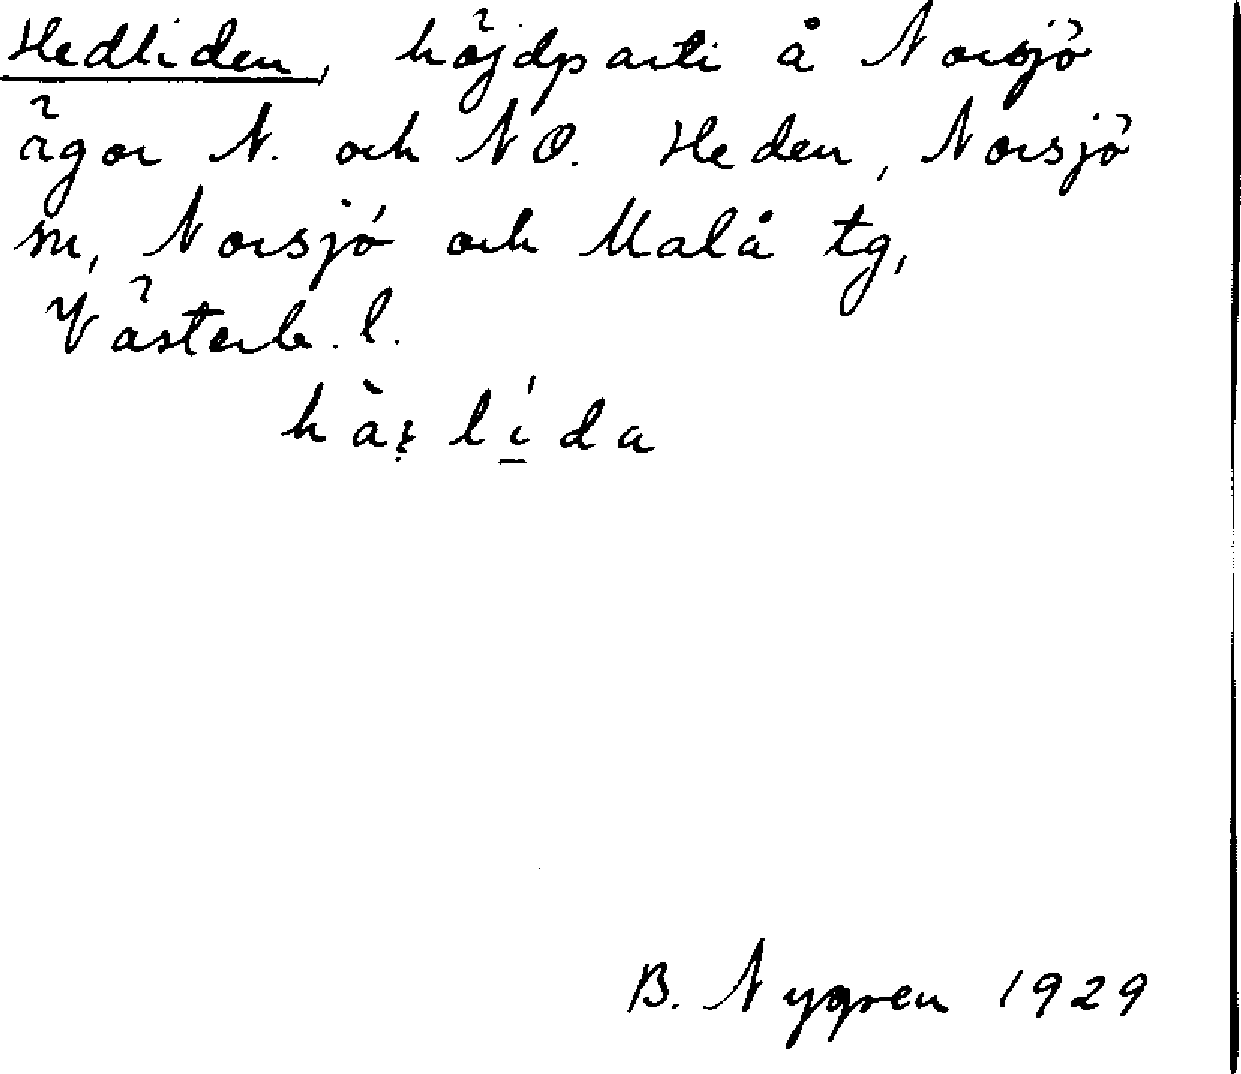 Hedliden, höjdparti å Norsjö
ägor N. och NO. Heden, Norsjö
sn, Norsjö och Malå tg,
Västerb. l.
hà: lí̱da
B. Nygren 1929